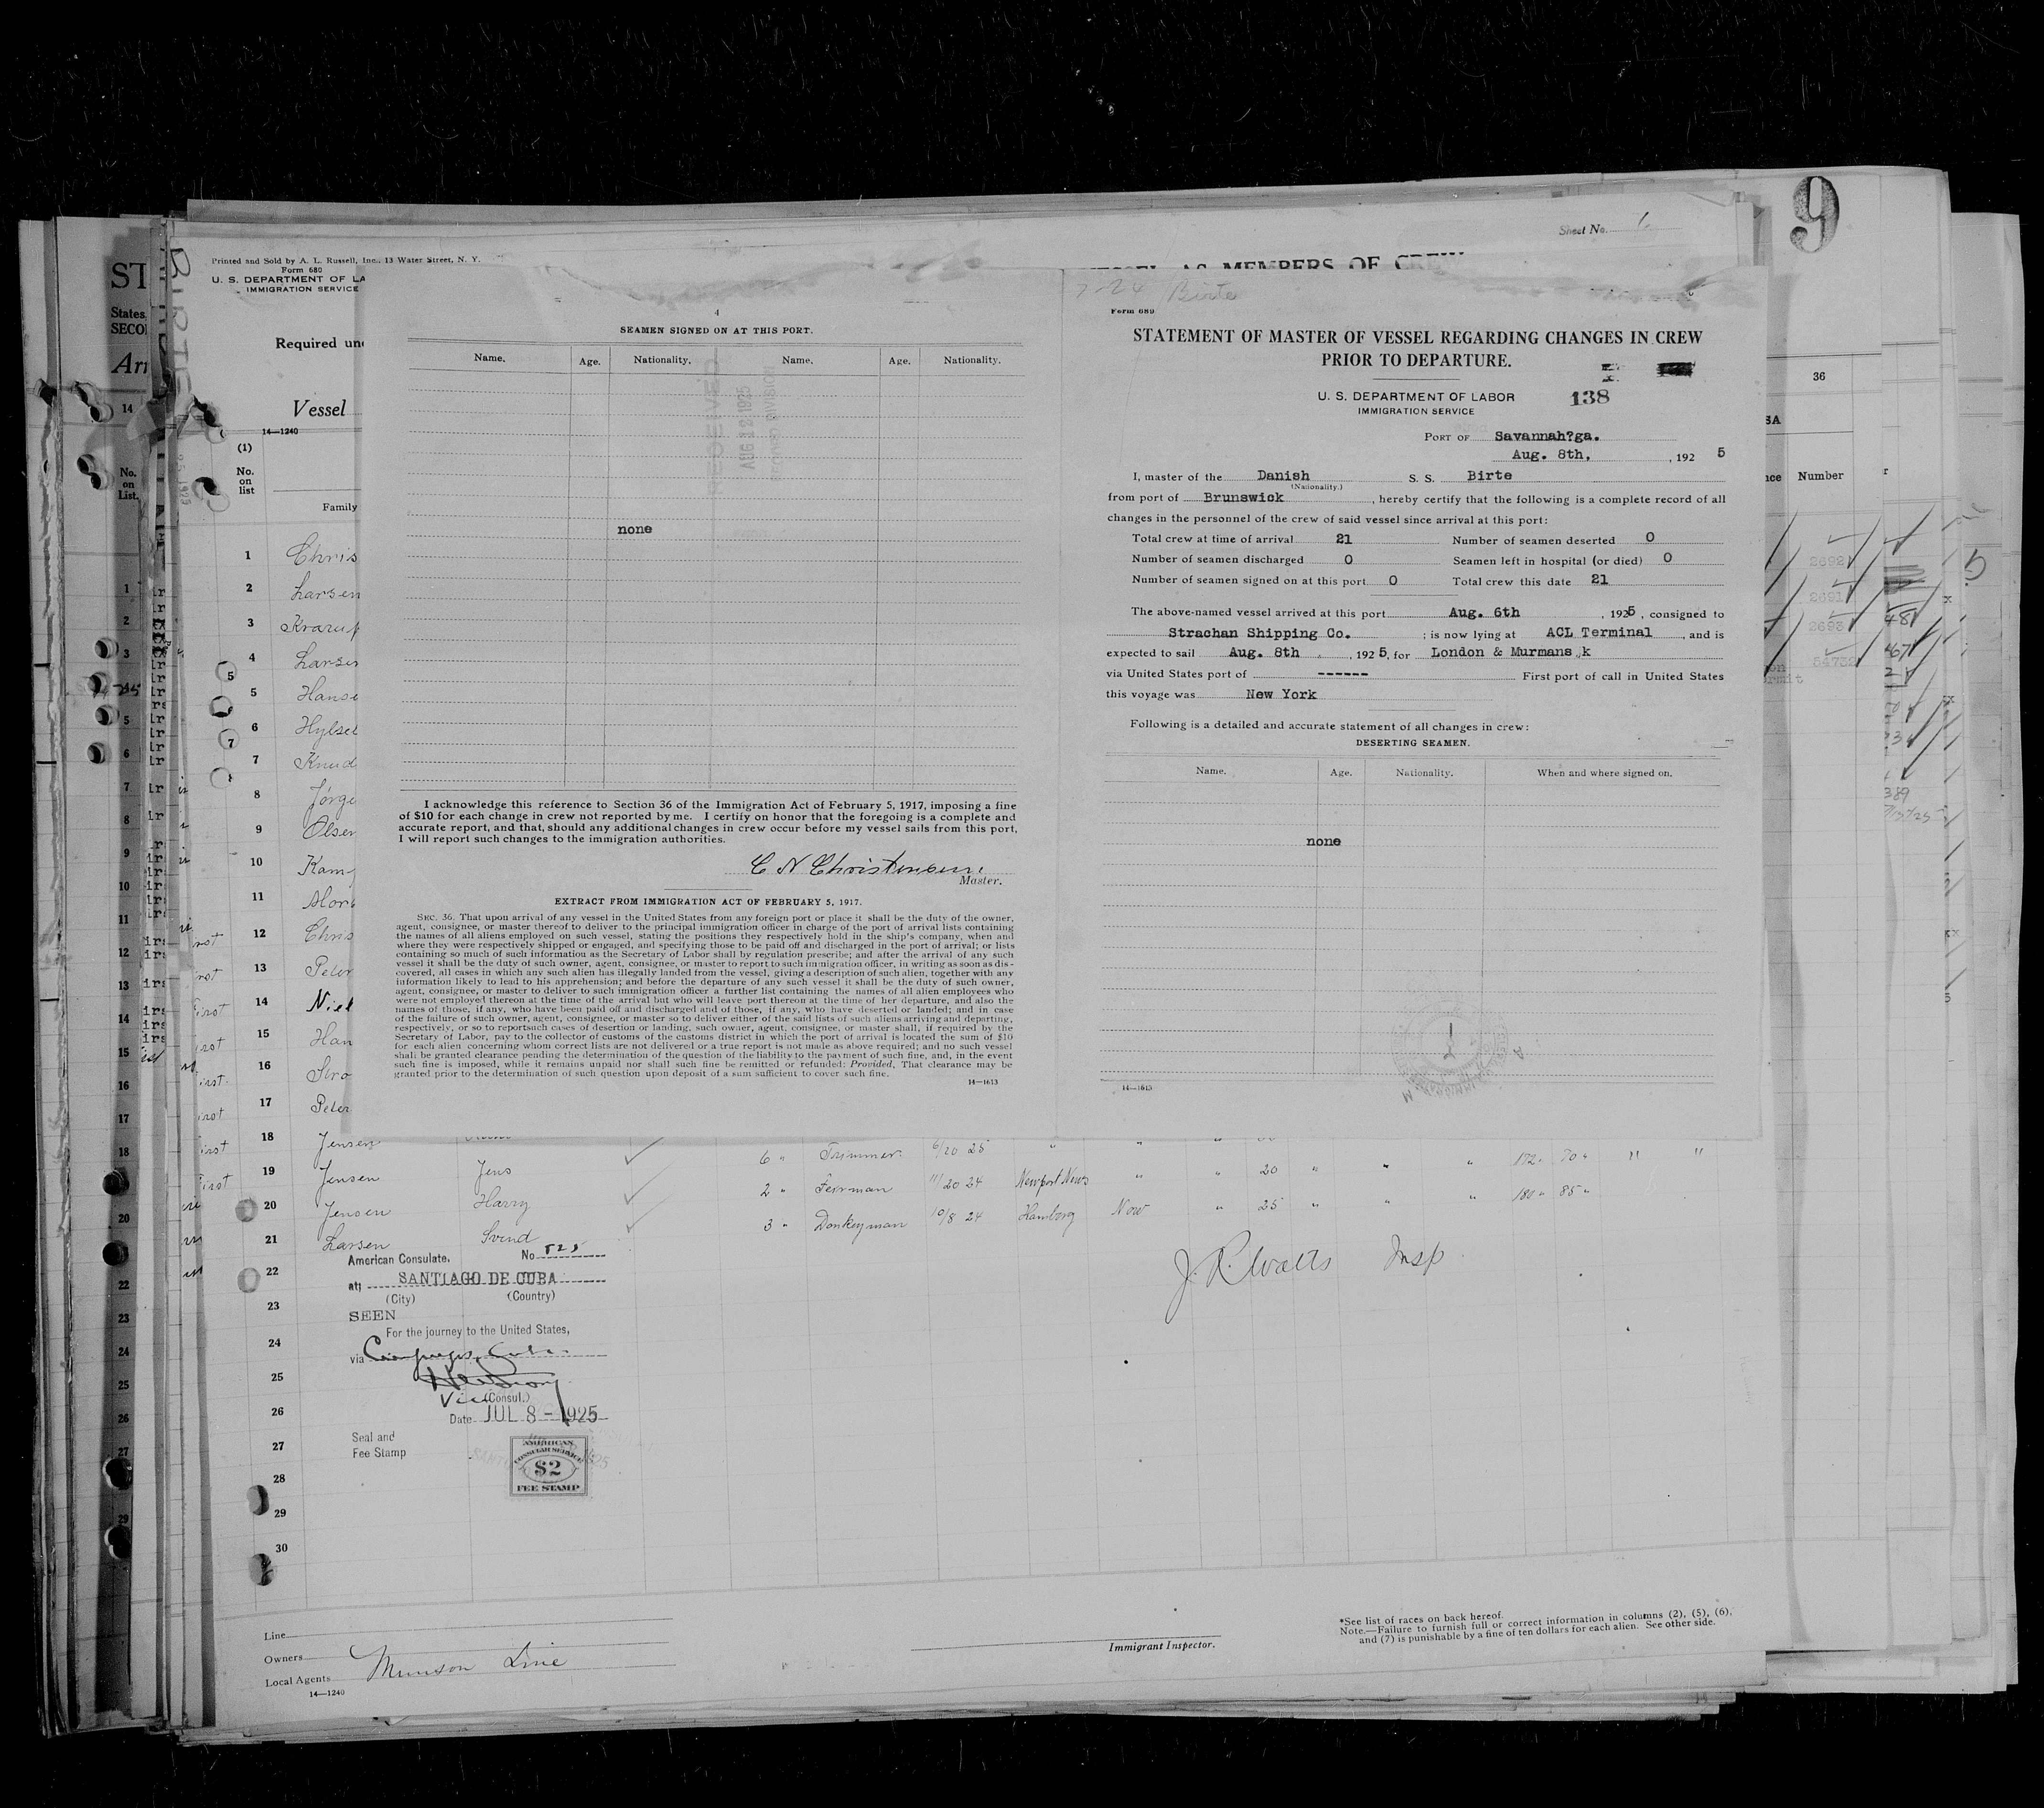 9
Sheet No.
Printed and Sold by A. L. Russell, Inc., 13 Water Street, N. Y.
Form 680
U. S. DEPARTMENT OF LA
IMMIGRATION SERVICE
VESSEL AS MEMBERS OF CREW
ST
States
SECO
Arr
Required und
Vessel
14—1240
(1)
No.
on
list
Family
1 Chris
2 Larsen
3 Krarup
4 Larsen
5 Hanse
6 Hylsel
7 Knud
8 Jørge
9 Olsen
10 Kam
11
12 Chris
13 Peter
14 Niel
15 Han
16
17 Peter
4
SEAMEN SIGNED ON AT THIS PORT.
Name. Age. Nationality. Name. Age. Nationality.
RECEIVED
AUG 12 1925
RECORD DIVISION
none
I acknowledge this reference to Section 36 of the Immigration Act of February 5, 1917, imposing a fine
of $10 for each change in crew not reported by me. I certify on honor that the foregoing is a complete and
accurate report, and that, should any additional changes in crew occur before my vessel sails from this port,
I will report such changes to the immigration authorities.
C N Christensen.
Master.
EXTRACT FROM IMMIGRATION ACT OF FEBRUARY 5, 1917.
SEC. 36. That upon arrival of any vessel in the United States from any foreign port or place it shall be the duty of the owner,
agent, consignee, or master thereof to deliver to the principal immigration officer in charge of the port of arrival lists containing
the names of all aliens employed on such vessel, stating the positions they respectively hold in the ship's company, when and
where they were respectively shipped or engaged, and specifying those to be paid off and discharged in the port of arrival; or lists
containing so much of such information as the Secretary of Labor shall by regulation prescribe; and after the arrival of any such
vessel it shall be the duty of such owner, agent, consignee, or master to report to such immigration officer, in writing as soon as dis-
covered, all cases in which any such alien has illegally landed from the vessel, giving a description of such alien, together with any
information likely to lead to his apprehension; and before the departure of any such vessel it shall be the duty of such owner,
agent, consignee, or master to deliver to such immigration officer a further list containing the names of all alien employees who
were not employed thereon at the time of the arrival but who will leave port thereon at the time of her departure, and also the
names of those, if any, who have been paid off and discharged and of those, if any, who have deserted or landed; and in case
of the failure of such owner, agent, consignee, or master so to deliver either of the said lists of such aliens arriving and departing,
respectively, or so to reportsuch cases of desertion or landing, such owner, agent, consignee, or master shall, if required by the
Secretary of Labor, pay to the collector of customs of the customs district in which the port of arrival is located the sum of $10
for each alien concerning whom correct lists are not delivered or a true report is not made as above required; and no such vessel
shall be granted clearance pending the determination of the question of the liability to the payment of such fine, and, in the event
such fine is imposed, while it remains unpaid nor shall such fine be remitted or refunded: Provided, That clearance may be
granted prior to the determination of such question upon deposit of a sum sufficient to cover such fine.
14—1613
7-24 Birte
Form 689
STATEMENT OF MASTER OF VESSEL REGARDING CHANGES IN CREW
PRIOR TO DEPARTURE.
U. S. DEPARTMENT OF LABOR
IMMIGRATION SERVICE
138
PORT OF Savannah?ga.
Aug. 8th, , 192 5
I, master of the Danish S. S. Birte
(Nationality.)
from port of Brunswick , hereby certify that the following is a complete record of all
changes in the personnel of the crew of said vessel since arrival at this port:
Total crew at time of arrival 21 Number of seamen deserted 0
Number of seamen discharged 0 Seamen left in hospital (or died) 0
Number of seamen signed on at this port 0 Total crew this date 21
The above-named vessel arrived at this port Aug. 6th , 1925, consigned to
Strachan Shipping Co. ; is now lying at ACL Terminal , and is
expected to sail Aug. 8th , 192 5, for London & Murmans k
via United States port of ------ First port of call in United States
this voyage was New York
Following is a detailed and accurate statement of all changes in crew:
DESERTING SEAMEN.
Name. Age. Nationality. When and where signed on.
none
14—1613
36
Number
2692
2691
2693
54732
18 Jensen 6 " Trimmer 6/20 25
19 Jensen Jens 2 " Feirman 11/20 24 Newport News " " 20 " " " 172 " 70 " " "
20 Jensen Harry 3 " Donkeyman 10/8 24 Hamborg Now " 25 " " " 180 " 85 "
21 Larsen Svend
22
23
24
25
26
27
28
29
30
American Consulate, No 525
at SANTIAGO DE CUBA
(City) (Country)
SEEN
For the journey to the United States,
via Cienfuegos, Cuba.
Vice (Consul.)
Date JUL 8 - 1925
Seal and
Fee Stamp
AMERICAN
CONSULAR SERVICE
$2
FEE STAMP
J. R. Watts Insp
Line
Owners
Local Agents Munson Line
14—1240
Immigrant Inspector.
*See list of races on back hereof.
Note.—Failure to furnish full or correct information in columns (2), (5), (6),
and (7) is punishable by a fine of ten dollars for each alien. See other side.